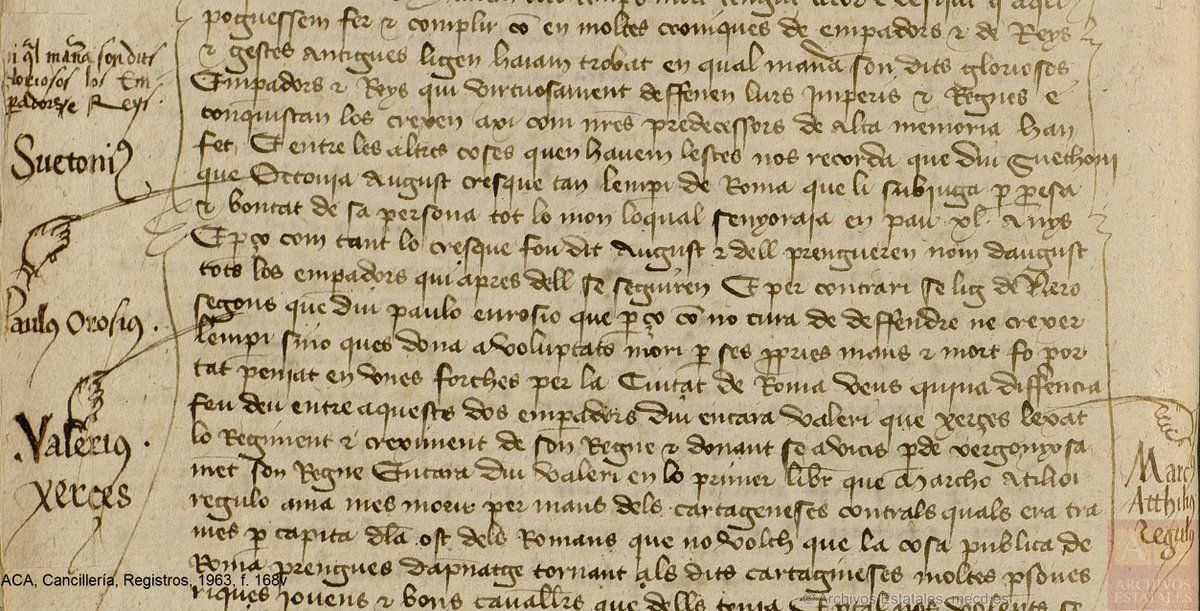 poguessem fer & complir cō en moltes croniques de empadors & de Reys
& gestes antigues ligen haiam trobat en qual mana son dits glorioses
Empadors & Reys qui virtuosament deffenen lurs Imperis & Regnes e
conquistan los crexen axi com nres predecessors de alta memoria han
fet. E entre les altres coses quen havem lestes nos recorda que diu Suethoni
que Octovia August cresque tan lemperi de Roma que li subiuga p pesa
& bontat de sa persona tot lo mon loqual senyoraia en pau xl. anys
E pço com tant lo cresque fou dit August & dell prengueren nom daugust
tots los empadors qui apres dell se seguiren E per contrari se lig de Nero
segons que diu paulo eurosio que pço cō no cura de deffendre ne crexer
lempi sino ques dona a voluptats mori p ses ppries mans & mort fo por
tat peniat en unes forches per la Ciutat de Roma veus quina differencia
fou deu entre aquests dos empadors diu encara valeri que xerces lexat
lo Regiment & creximent de son Regne & donant se a vicis pde vergonyosa
ment son Regne Encara diu valeri en lo primer libre que Marcho Atilio
regulo ama mes morir per mans dels cartagineses contrals quals era tra
mes p capita dla ost dels Romans que no volch que la cosa publica de
Roma prengues dapnatge tornant als dits cartagineses moltes psones
riques iovens & bons cavallers que dells tenia
ql mana son dits
gloriosos los Em
padors e Reys.
Suetoni9
Paulus Orosius.
.Valerius.
xerces
March
Atthilius
Regulus
ACA, Cancillería, Registros, 1963, f. 168v
© Archivos Estatales, mecd.es
ARCHIVOS
ESTATALES